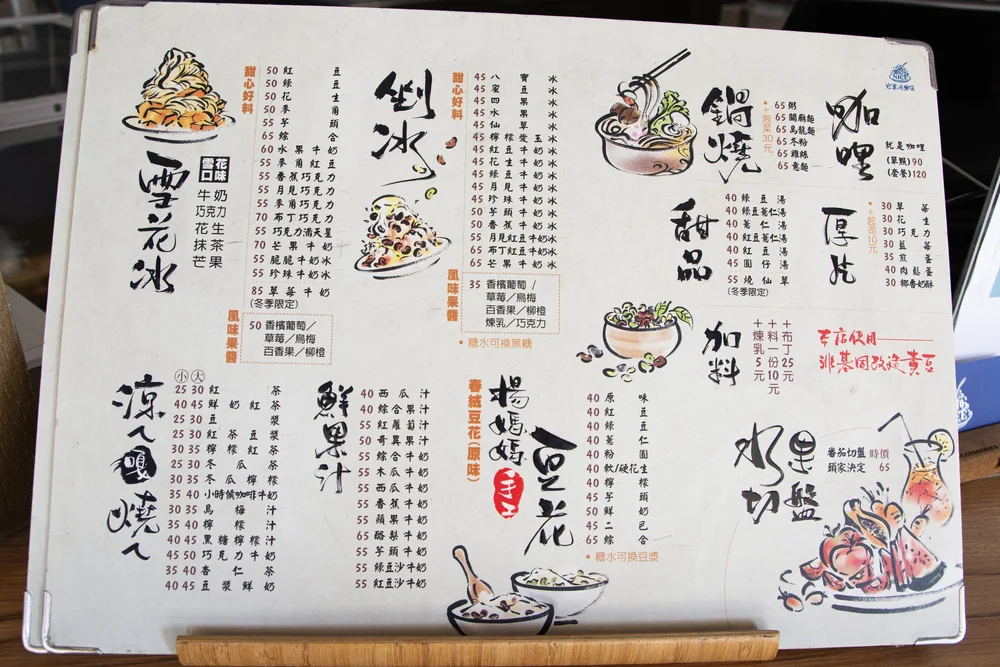 雪花冰
雪花口味
牛奶
巧克力
花生
抹茶
芒果
甜心好料
50 紅豆
50 綠豆
50 花生
50 麥角
55 芋頭
65 綜合
60 水果牛奶
55 麥角紅豆
55 香蕉巧克力
55 月見巧克力
55 麥角巧克力
70 布丁巧克力
55 巧克力滿天星
70 芒果牛奶
55 脆脆牛奶冰
55 珍珠牛奶冰
85 草莓牛奶
(冬季限定)
風味果醬
50 香檳葡萄／
草莓／烏梅
百香果／柳橙
剉冰
甜心好料
45 八寶冰
45 蜜豆冰
45 四果冰
45 仙草冰
45 檸檬愛玉冰
45 紅豆牛奶冰
45 花生牛奶冰
45 綠豆牛奶冰
45 月見牛奶冰
45 珍珠牛奶冰
50 芋頭牛奶冰
50 香蕉牛奶冰
60 月見紅豆牛奶冰
65 布丁紅豆牛奶冰
65 芒果牛奶冰
風味果醬
35 香檳葡萄／
草莓／烏梅
百香果／柳橙
煉乳／巧克力
• 糖水可換黑糖
鍋燒
•＋泡菜30元
65 粥
65 關廟麵
65 烏龍麵
65 冬粉
65 雞絲
65 意麵
咖哩
就是咖哩
(單點)90
(套餐)120
甜品
40 綠豆湯
40 綠豆薏仁湯
40 薏仁湯
40 紅豆薏仁湯
40 紅豆湯
45 圓仔湯
55 燒仙草
(冬季限定)
厚片
•＋起司10元
30 草莓
30 花生
30 巧克力
30 藍莓
35 煎蛋
40 肉鬆蛋
30 椰香奶酥
加料
＋布丁25元
＋料一份10元
＋煉乳5元
本店使用——
非基因改造黃豆
涼ㄟ嘎燒ㄟ
小 大
25 30 紅茶
40 45 鮮奶紅茶
25 30 豆漿
25 30 紅茶豆漿
30 35 檸檬紅茶
25 30 冬瓜茶
30 35 冬瓜檸檬
35 40 小時候咖啡牛奶
30 35 烏梅汁
35 40 檸檬汁
40 45 黑糖檸檬汁
45 50 巧克力牛奶
35 40 杏仁茶
40 45 豆漿鮮奶
鮮果汁
40 西瓜汁
40 綜合果汁
55 紅蘿蔔汁
50 奇異果汁
55 綜合牛奶
55 木瓜牛奶
55 西瓜牛奶
55 香蕉牛奶
55 蘋果牛奶
65 酪梨牛奶
55 芋頭牛奶
55 綠豆沙牛奶
55 紅豆沙牛奶
春絨豆花(原味)
楊媽媽
手工
豆花
40 原味
40 紅豆
40 綠豆
40 薏仁
40 粉圓
40 軟/硬花生
40 檸檬
45 芋頭
50 鮮奶
45 二色
65 綜合
• 糖水可換豆漿
水果切盤
番茄切盤 時價
頭家決定 65